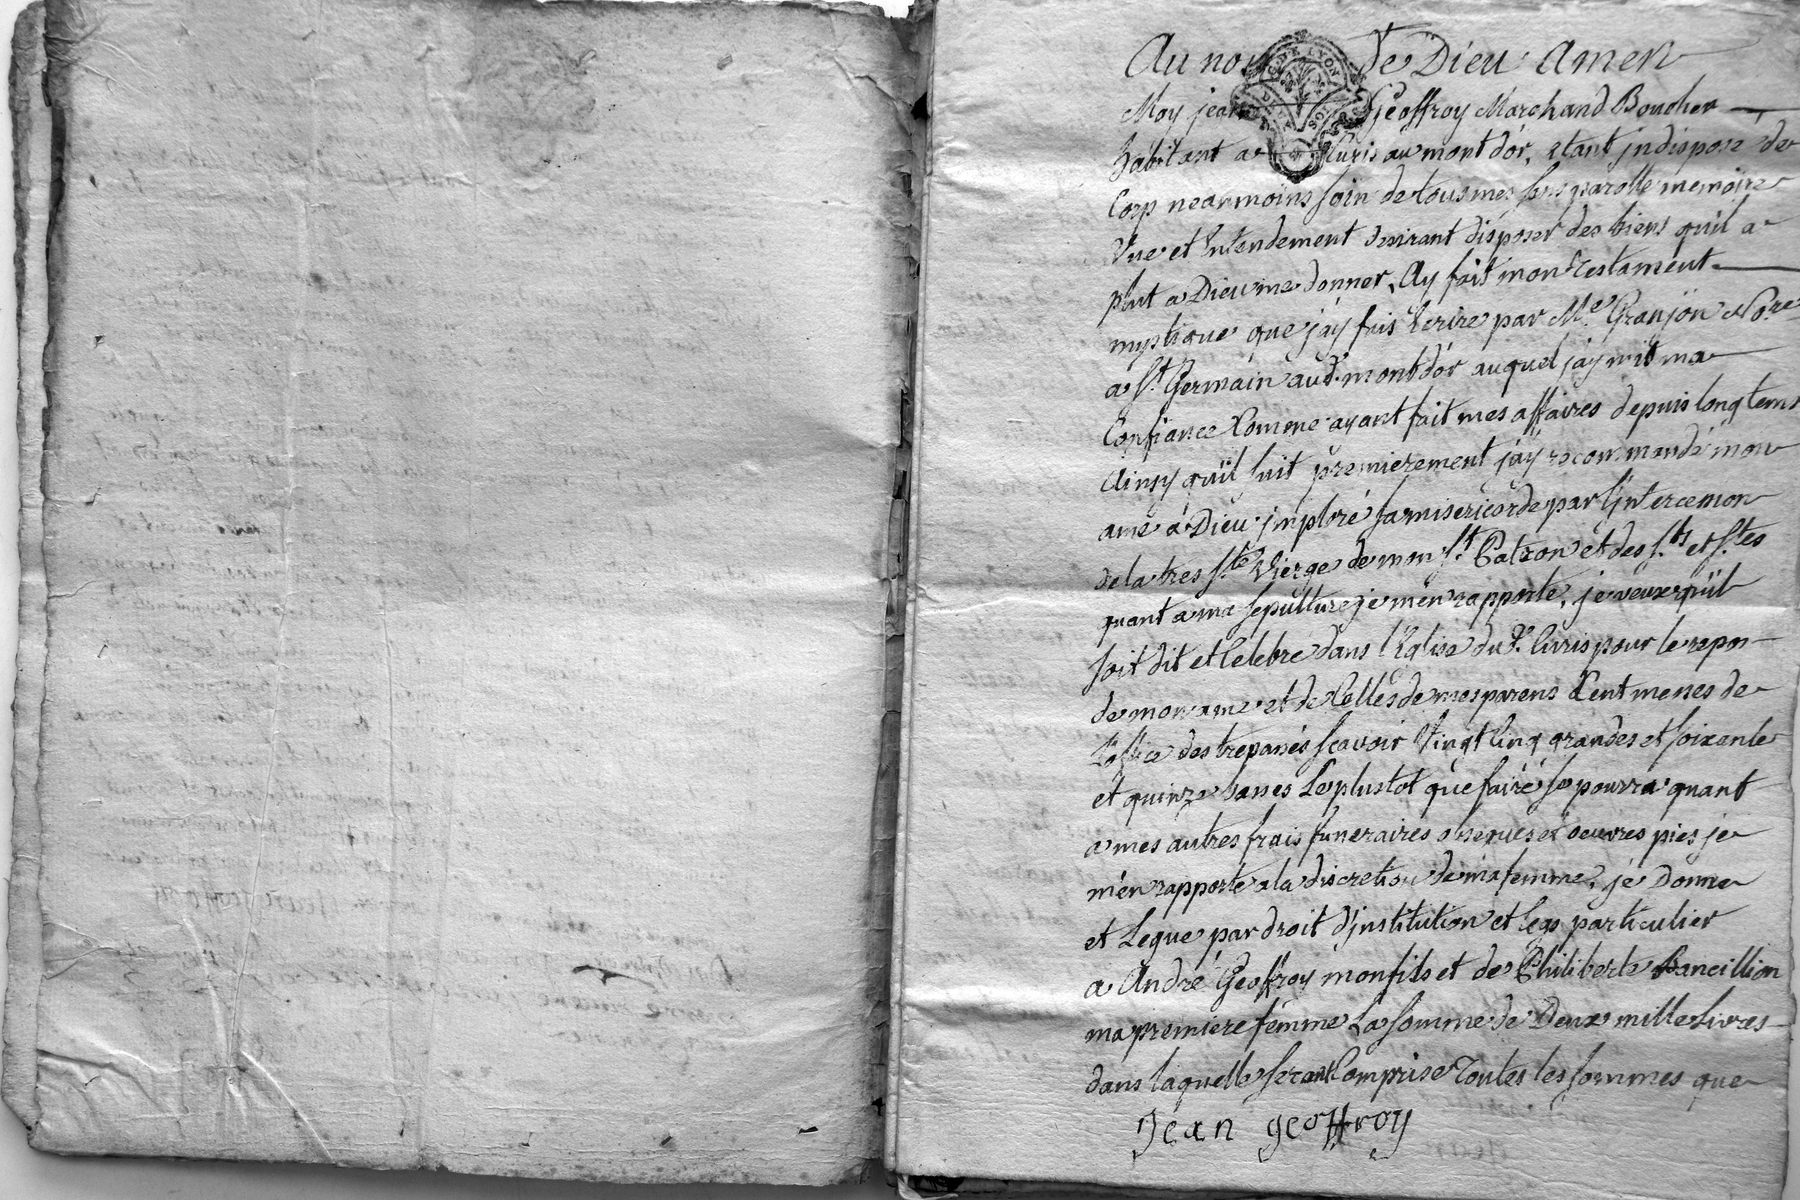 Au nom de Dieu Amen
Moy jean Geoffroy Marchand Boucher
habitant a Curis au mont d'or, etant jndisposé de
Corp neanmoins sain de tous mes sens parolle memoire
Vue et Entendement desirant disposer des biens qu'il a
plut a Dieu me donner, Ay fait mon Testament
mystique que j'ay fais Ecrire par Me Granjon Nore
a St Germain aud. mont d'or auquel j'ay mit ma
Confiance Comme ayant fait mes affaires depuis longtems
Ainsy qu'il suit premierement j'ay recommandé mon
ame a Dieu jmploré sa misericorde par l'jntercession
de la tres Ste Vierge de mon St Patron et des Sts et Stes
quant a ma sepulture je m'en rapporte, je veux qu'il
soit dit et Celebré dans l'Eglise dud. Curis pour le repos
de mon ame et de Celles de mes parens Cent messes de
L'office des trepassés scavoir Vingt Cinq grandes et soixante
et quinze basses Le plustot que faire se pourra quant
a mes autres frais funeraires obseques et oeuvres pies je
m'en rapporte a la discretion de ma femme, je Donne
et Legue par droit d'jnstitution et legs particulier
a André Geoffroy mon fils et de Philiberte Bancillion
ma premiere femme La somme de Deux mille Livres
dans laquelle seront Comprise Toutes les sommes que
Jean geoffroy